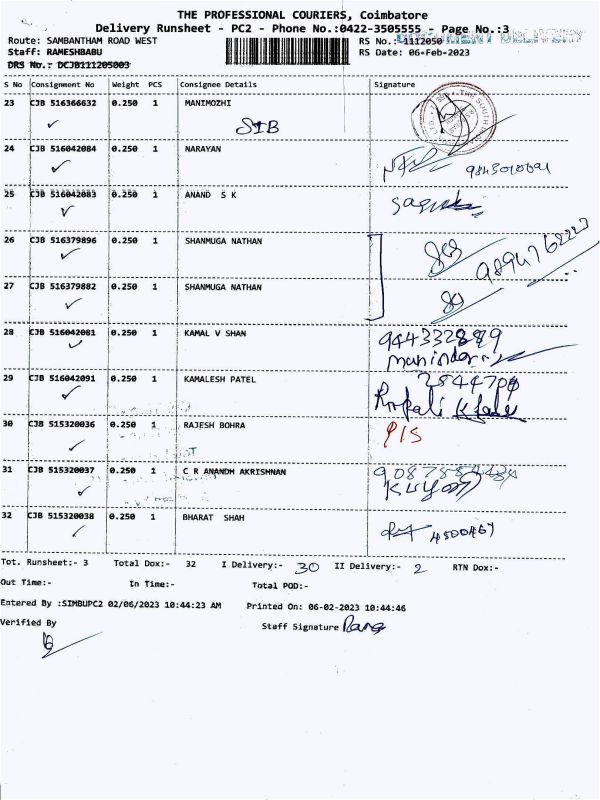 THE PROFESSIONAL COURIERS, Coimbatore
Delivery Runsheet - PC2 - Phone No.:0422-3505555 - Page No.:3
DOCUMENT DELIVERY
Route: SAMBANTHAM ROAD WEST RS No.:-1112050
Staff: RAMESHBABU RS Date: 06-Feb-2023
DRS No.: DCJB111205003
S No Consignment No Weight PCS Consignee Details Signature
23 CJB 516366632 0.250 1 MANIMOZHI
SIB
24 CJB 516042084 0.250 1 NARAYAN
25 CJB 516042083 0.250 1 ANAND S K
26 CJB 516379896 0.250 1 SHANMUGA NATHAN
9894762223
27 CJB 516379882 0.250 1 SHANMUGA NATHAN
28 CJB 516042081 0.250 1 KAMAL V SHAN
29 CJB 516042091 0.250 1 KAMALESH PATEL
30 CJB 515320036 0.250 1 RAJESH BOHRA
P/S
31 CJB 515320037 0.250 1 C R ANANDH AKRISHNAN
32 CJB 515320038 0.250 1 BHARAT SHAH
Tot. Runsheet:- 3 Total Dox:- 32 I Delivery:- 30 II Delivery:- 2 RTN Dox:-
Out Time:- In Time:- Total POD:-
Entered By :SIMBUPC2 02/06/2023 10:44:23 AM Printed On: 06-02-2023 10:44:46
Verified By Staff Signature